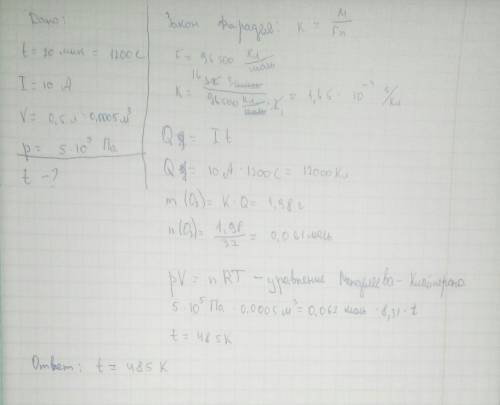 Дано:
t = 20 мин = 1200 с
I = 10 А
V = 0,5 л = 0,0005 м³
p = 5·10⁵ Па
t - ?
Закон Фарадея: K = M / Fn
F = 96500 Кл/моль
K = 16 / 96500 Кл/моль = 1,65 · 10⁻⁴ г/Кл
Q = It
Q = 10 А · 1200 с = 12000 Кл
m(O₂) = K · Q = 1,98 г
n(O₂) = 1,98 / 32 = 0,062 моль
pV = nRT – уравнение Менделеева-Клайперона
5·10⁵ Па · 0,0005 м³ = 0,062 моль · 8,31 · t
t = 485 К
Ответ: t = 485 К